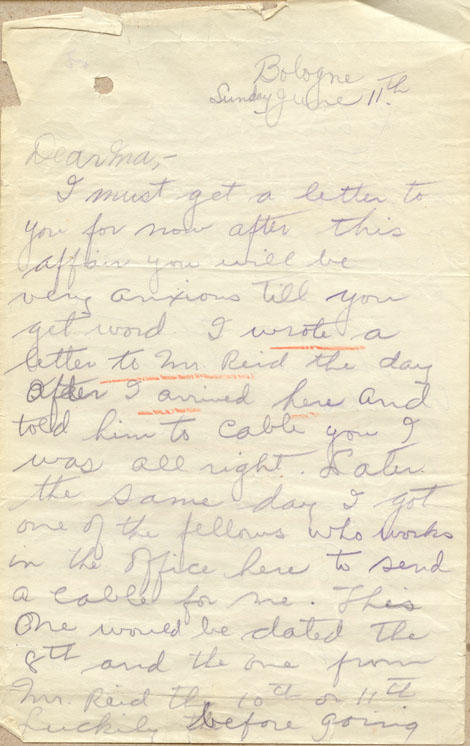 Bologne
Sunday June 11th
Dear Ma,-
I must get a letter to
you for now after this
affair you will be
very anxious till you
get word. I wrote a
letter to Mr. Reid the day
after I arrived here and
told him to cable you I
was all right. Later
the same day I got
one of the fellows who works
in the office here to send
a cable for me. This
one would be dated the
8th and the one from
Mr. Reid the 10th or 11th
Luckily before going